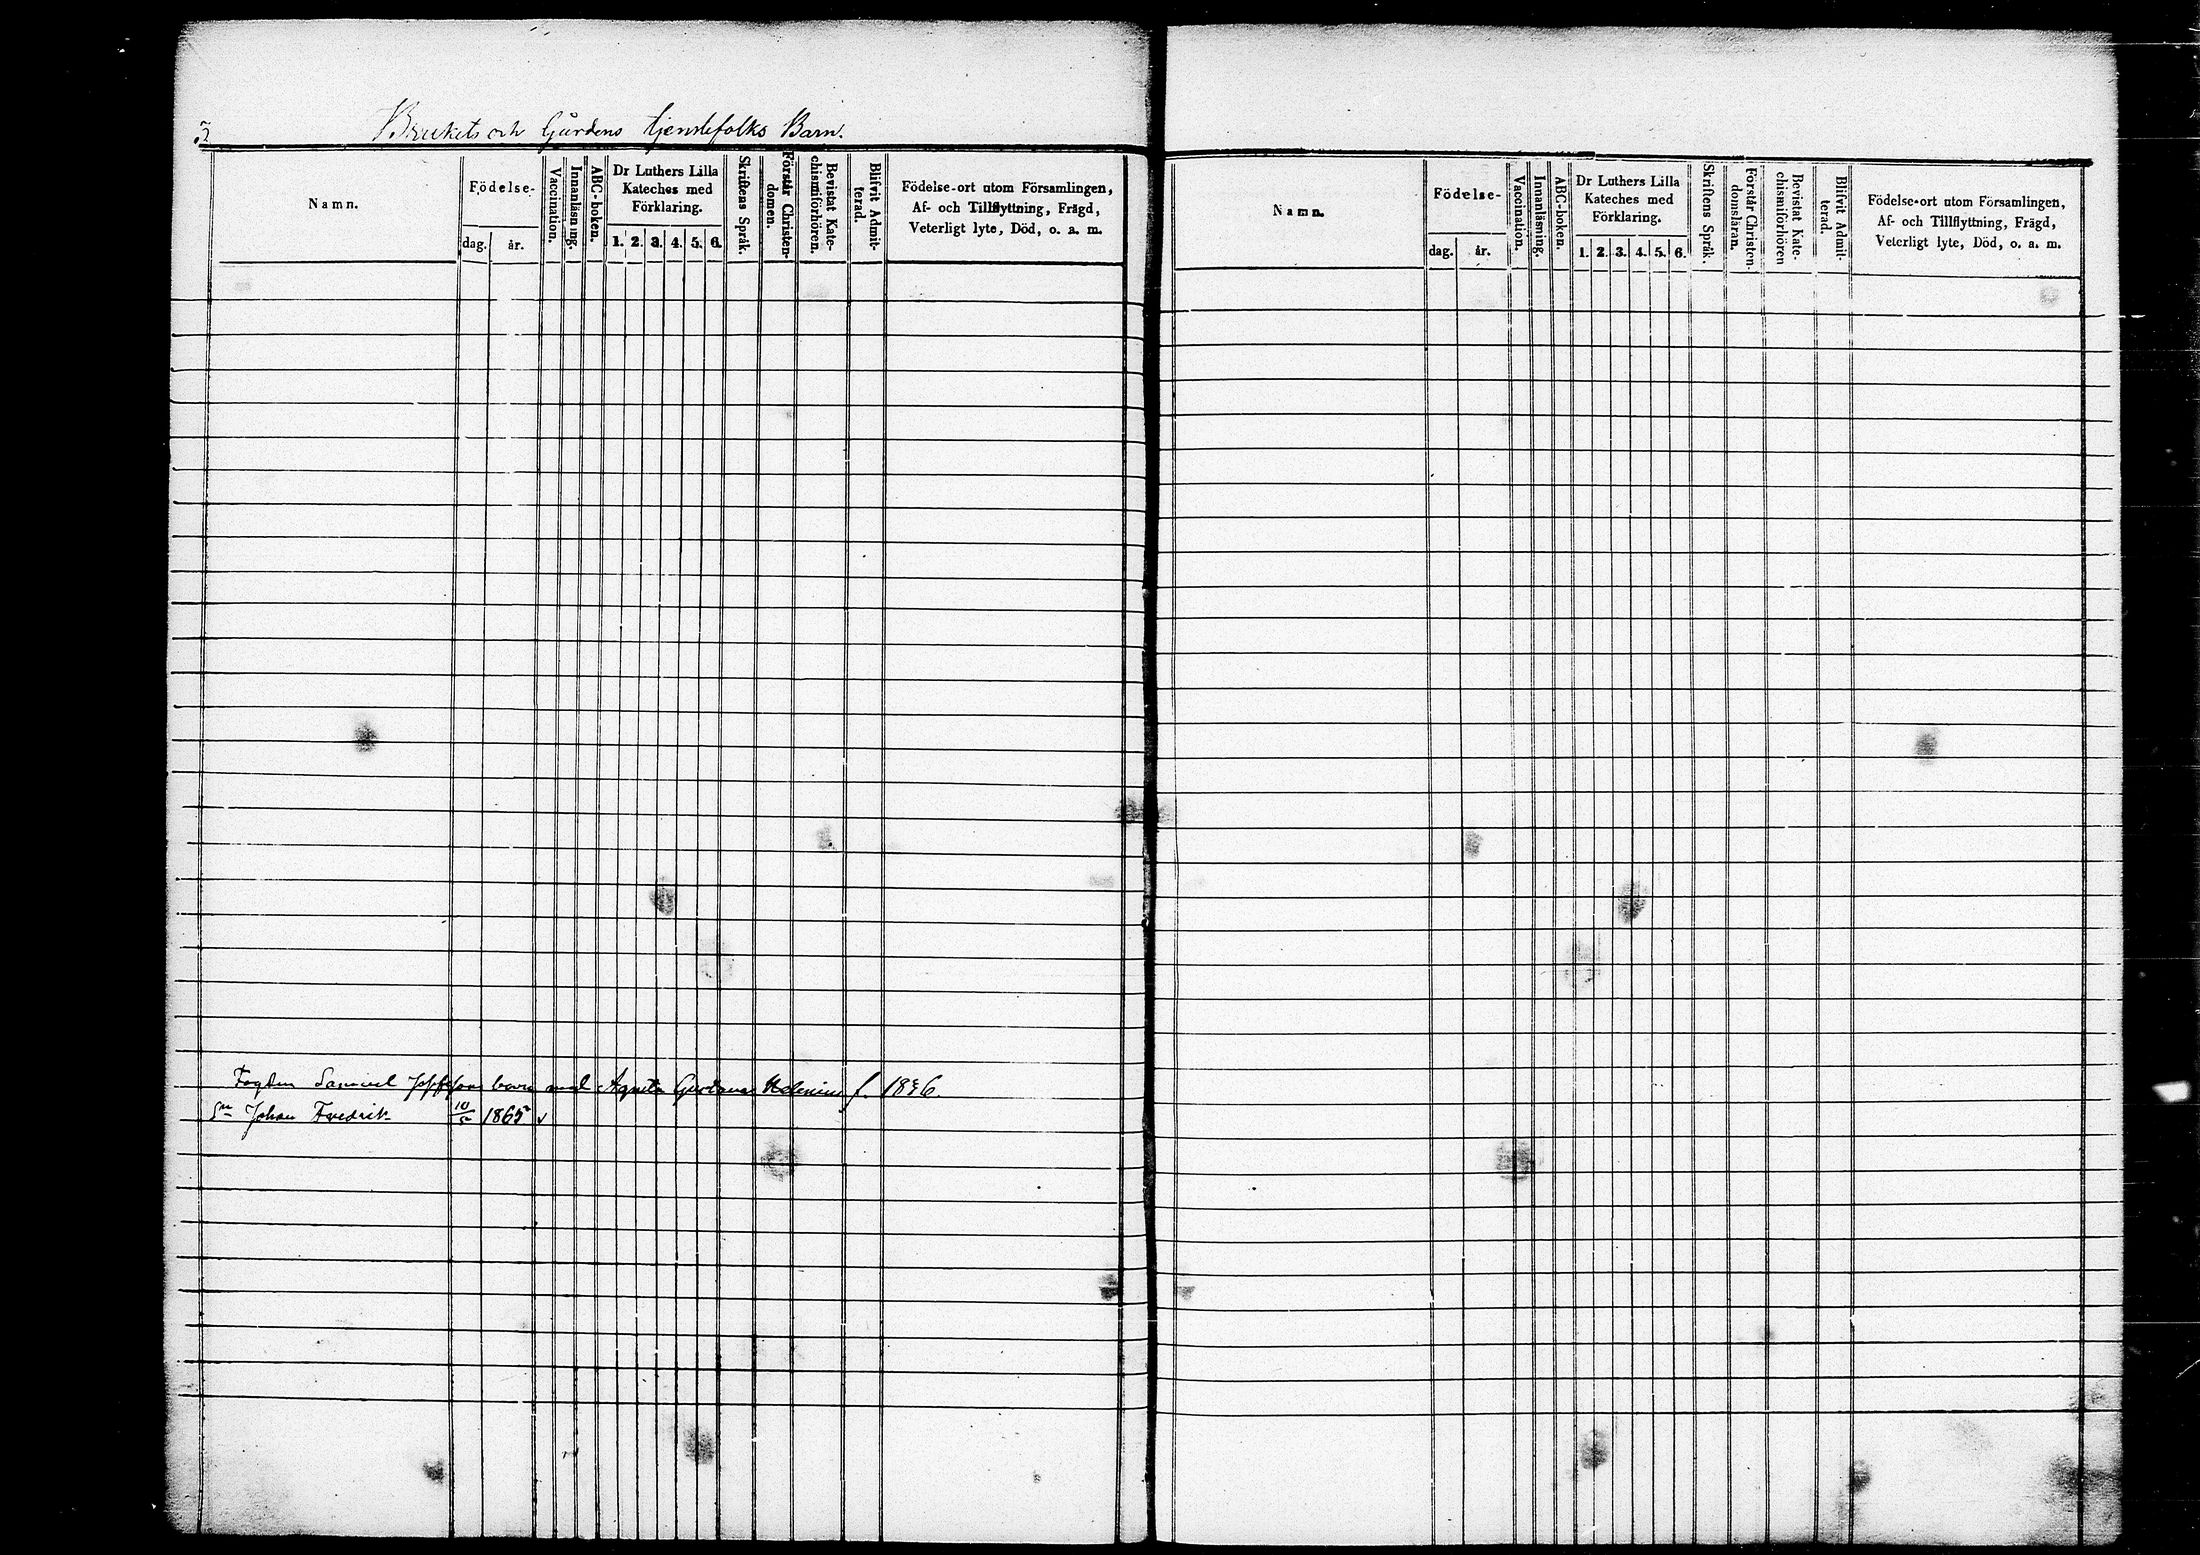 Brukets och Gårdens tjenstefolks Barn.
Namn.
Födelse-
dag. år.
Vaccination.
Innanläsning.
ABC-boken.
Dr Luthers Lilla
Kateches med
Förklaring.
1. 2. 3. 4. 5. 6.
Skriftens Språk.
Förstår Christen-
domen.
Bevistat Kate-
chismiförhören.
Blifvit Admit-
terad.
Födelse-ort utom Församlingen,
Af- och Tillflyttning, Frägd,
Veterligt lyte, Död, o. a. m.
Fogden Samuel barn med Agneta Gustava f. 1836.
Sn Johan Fredrik 10/5 1865
Namn.
Födelse-
dag. år.
Vaccination.
Innanläsning.
ABC-boken.
Dr Luthers Lilla
Kateches med
Förklaring.
1. 2. 3. 4. 5. 6.
Skriftens Språk.
Förstår Christen-
domsläran.
Bevistat Kate-
chismiförhören
Blifvit Admit-
terad.
Födelse-ort utom Församlingen,
Af- och Tillflyttning, Frägd,
Veterligt lyte, Död, o. a. m.